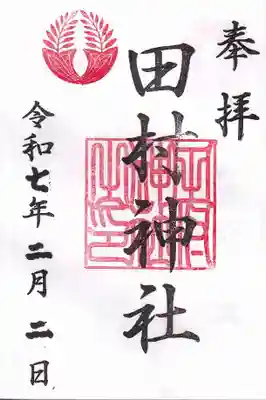 奉拝
田村神社
令和七年二月二日